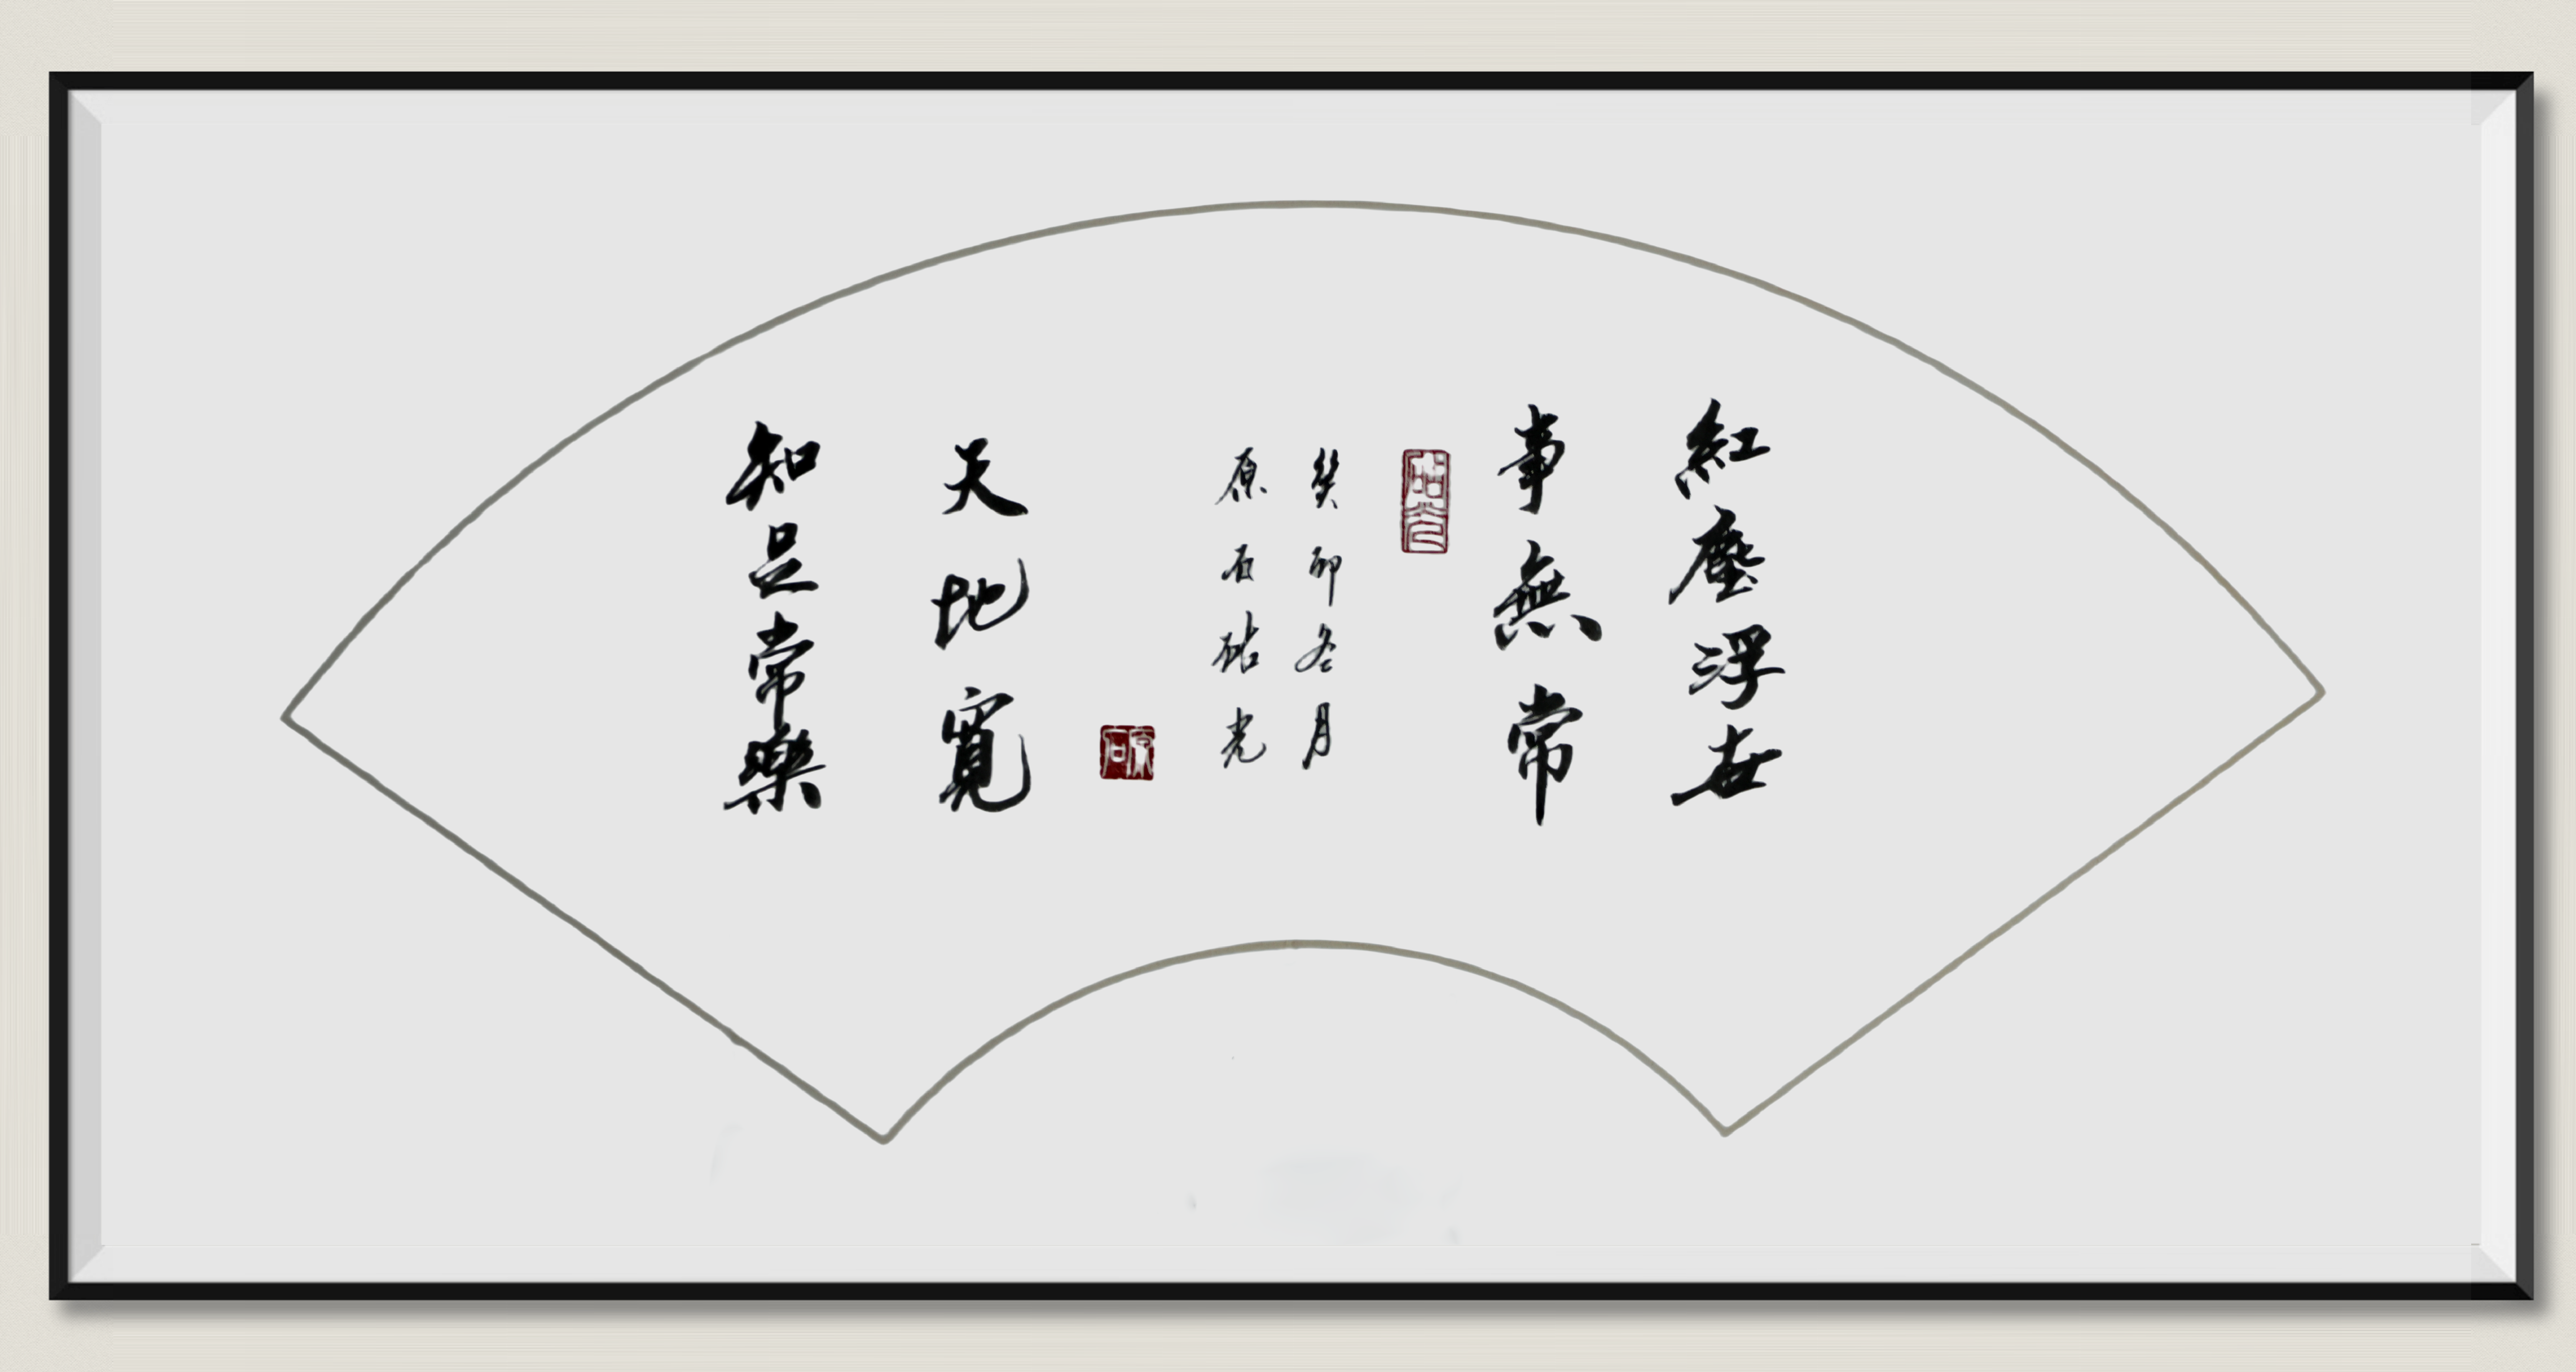 紅塵浮世
事無常
知足常樂
天地寬
砧光
癸卯冬月
原石砧光
原石